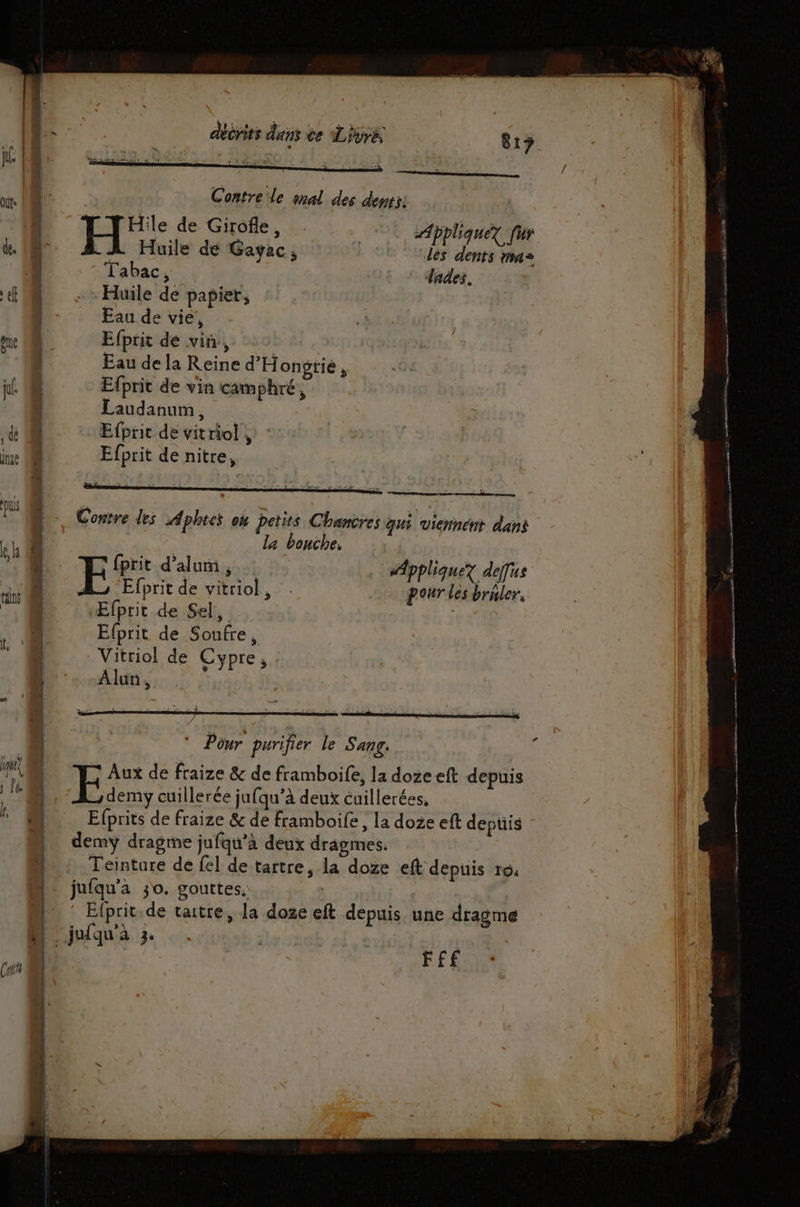 décrits dans ce Livre. 817
Contre le mal des dents.
HHile de Girofle, Appliquez sur
Huile de Gayac, les dents ma-
Tabac, lades.
Huile de papier,
Eau de vie,
Esprit de vin,
Eau de la Reine d'Hongrie,
Esprit de vin camphré,
Laudanum,
Esprit de vitriol,
Esprit de nitre,
Contre les Aphtes ou petits Chancres qui viennent dans
la bouche.
Esprit d'alum, Appliquez dessus
Esprit de vitriol, pour les brûler.
Esprit de Sel,
Esprit de Soufre,
Vitriol de Cypre,
Alun,
Pour purifier le Sang.
EAux de fraize & de framboise, la doze est depuis
demy cuillerée jusqu'à deux cuillerées.
Esprits de fraize & de framboise, la doze est depuis
demy dragme jusqu'à deux dragmes.
Teinture de sel de tartre, la doze est depuis 10.
jusqu'à 30. gouttes.
Esprit de tartre, la doze est depuis une dragme
jusqu'à 3.
Fff